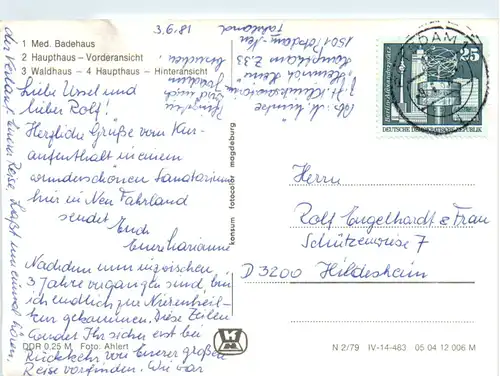 3.6.81
1 Med. Badehaus
2 Haupthaus - Vorderansicht
3 Waldhaus - 4 Haupthaus - Hinteransicht
Liebe Ursel und
lieber Rolf!
Herzliche Grüße vom Kur-
aufenthalt in einem
wunderschönen Sanatorium
hier in Neu Fahrland
sendet Euch
Eure Marianne
Nachdem nun inzwischen
3 Jahre vergangen sind, bin
ich endlich zur Nierenheil-
kur gekommen. Diese Zeilen
werdet Ihr sicher erst bei
Rückkehr von Eurer großen
Reise vorfinden. Wie war
der Verlauf Eurer Reise, laßt uns einmal hören.
"Heinrich Heine"
Haupthaus Z. 33
1501 Potsdam-Neu
Fahrland
konsum fotocolor magdeburg
DDR 0,25 M Foto: Ahlert
POTSDAM
25
DEUTSCHE DEMOKRATISCHE REPUBLIK
Herrn
Rolf Engelhardt & Frau
Schützenwiese 7
D 3200 Hildesheim
N 2/79 IV-14-483 05 04 12 006 M